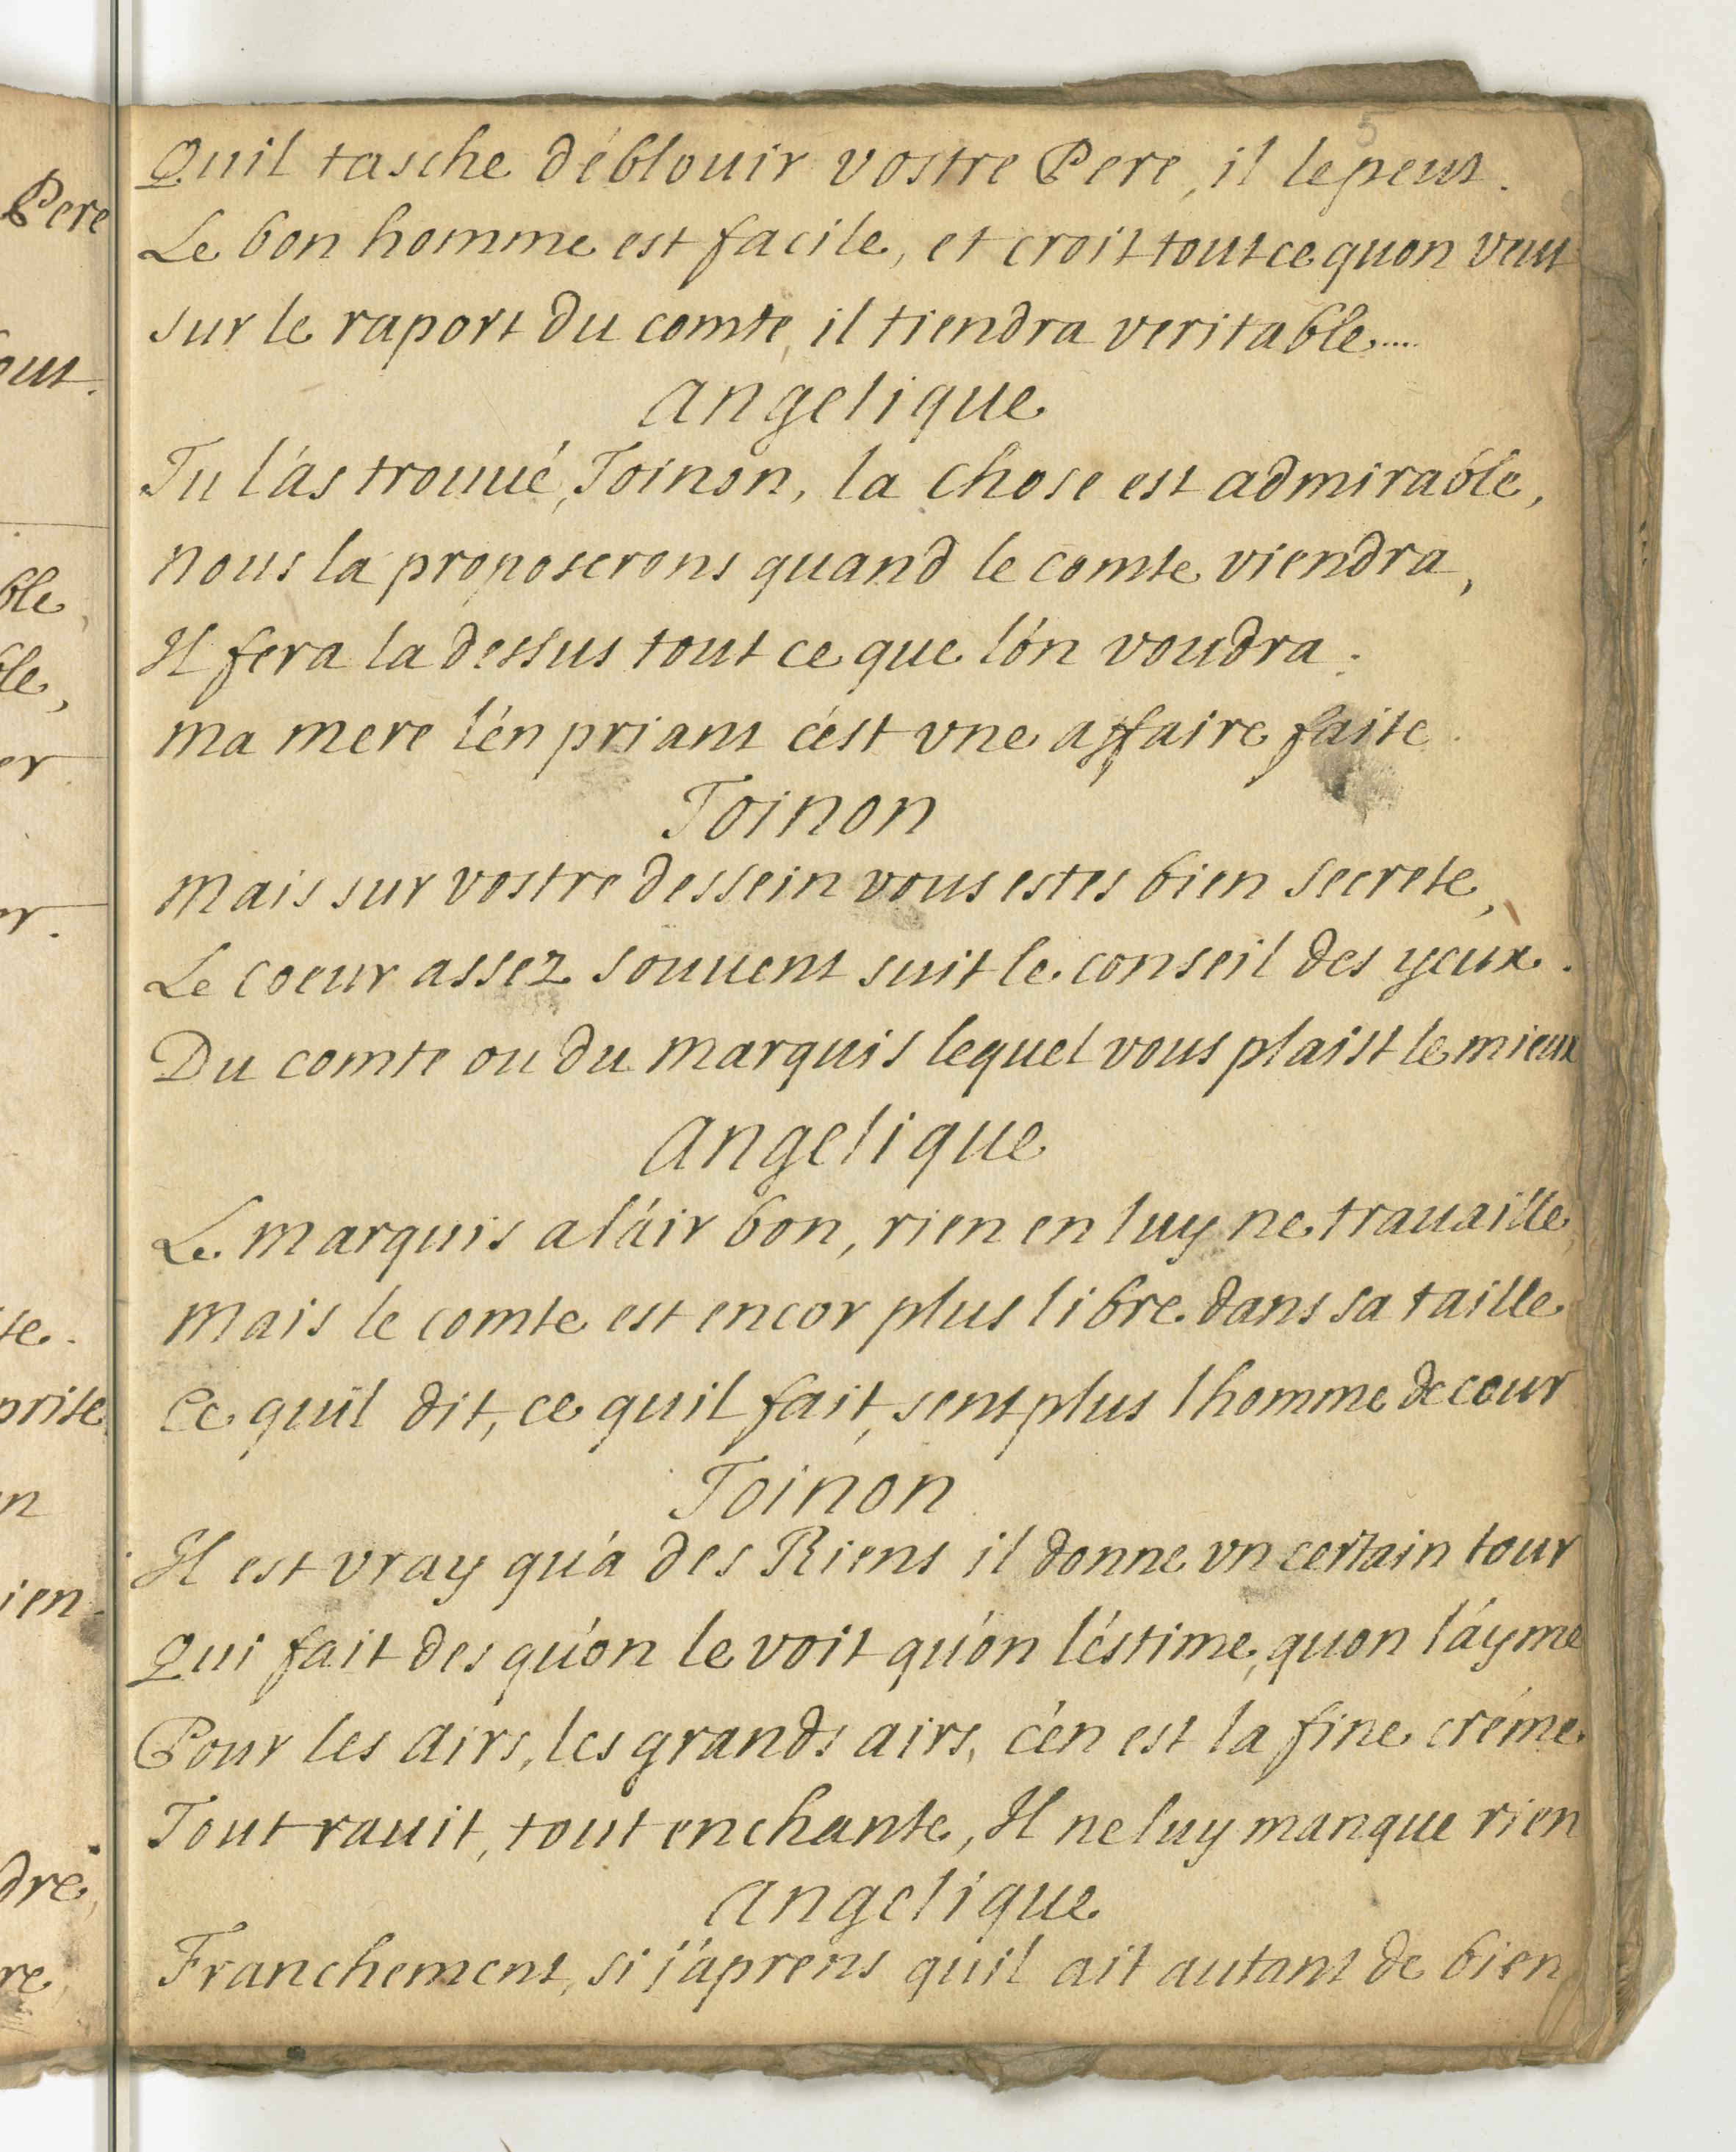 5
Quil tasche d'éblouir vostre Pere, il le peut.
Le bon homme est facile, et croit tout ce quon veut
sur le raport du comte, il tiendra veritable.....
Angelique
Tu l'as trouué, Toinon, la chose est admirable,
nous la proposerons quand le comte viendra,
Il fera la dessus tout ce que l'on voudra.
ma mere l'en priant c'est vne affaire faite.
Toinon
Mais sur vostre dessein vous estes bien secrete,
Le coeur assez souuent suit le conseil des yeux.
Du comte ou du marquis lequel vous plaist le mieux
Angelique
Le marquis a l'air bon, rien en luy ne trauaille,
Mais le comte est encor plus libre dans sa taille
Ce qu'il dit, ce quil fait, sent plus lhomme de cour
Toinon
Il est vray qu'a des Riens il donne vn certain tour
Qui fait des qu'on le voit qu'on l'estime, quon l'ayme
Pour les airs, les grands airs, c'en est la fine créme.
Tout rauit, tout enchante, Il ne luy manque rien
Angelique
Franchement, si j'aprens qu'il ait autant de bien
Pere
out.
ble,
ble,
er
er.
te.
prise
n
ien.
dre,
re,